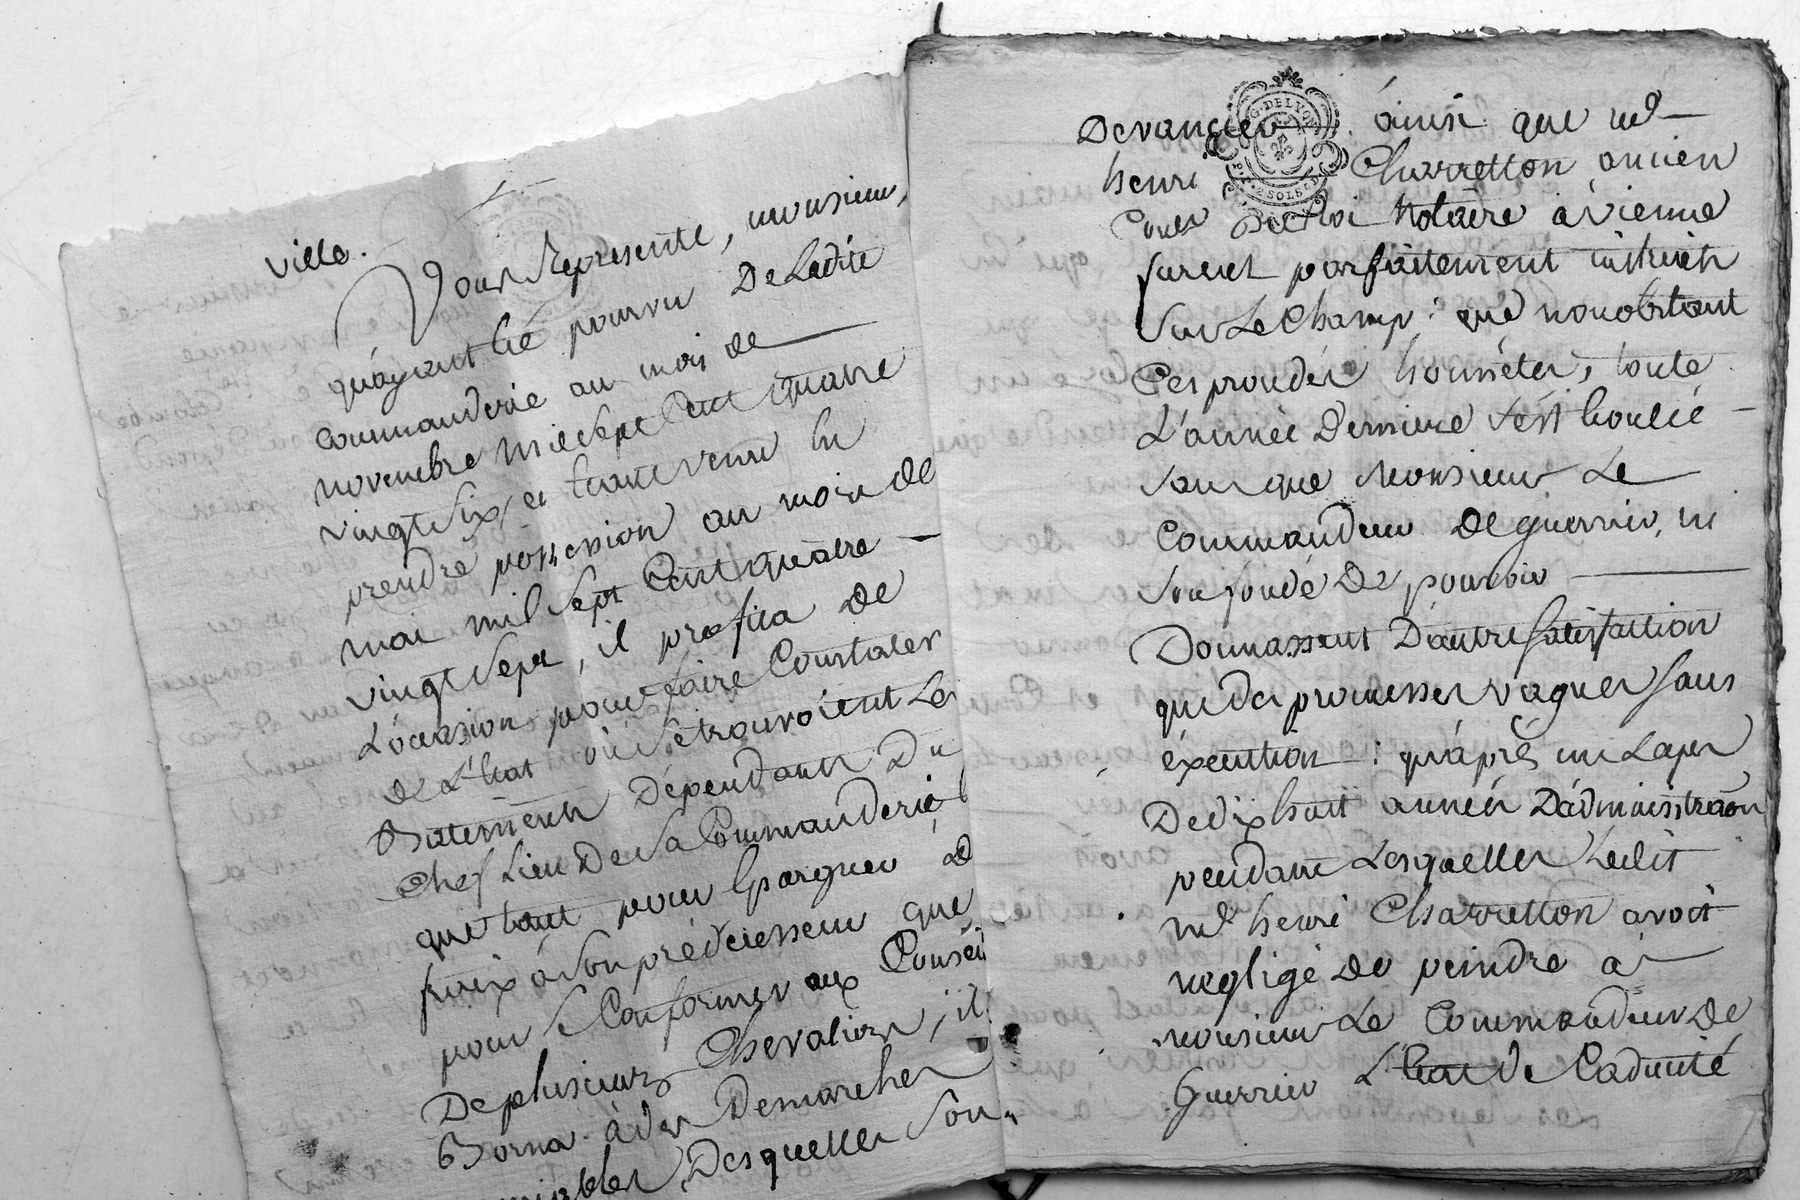 ville.
Vous Represente, monsieur,
qu'ayant été pourvu De Ladite
commanderie au mois de
novembre mil sept Cent quatre
vingt Six, et étant venu en
prendre possession au mois de
mai mil Sept Cent quatre
vingt Sept, il profita de
L'occasion pour faire Constater
de L'état où Se trouvoient Les
Batiments Dépendants Du
Chef Lieu De Sa Commanderie
que tant pour Epargner de
fraix à Son prédecesseur que
pour Se Conformer aux Conseil
De plusieurs Chevaliers, il
Borna à des Demarches
Desquelles Son
Devancier ainsi que me
henri Charretton ancien
Coner Du Roi Notaire à vienne
furent parfaitement instruits
Sur Le Champ : que nonobstant
Ces procédés honnêtes, toute
L'année Derniere S'est Ecoulée
Sans que Monsieur Le
Commandeur De guerrier, ni
Son fondé De pouvoir
Donnassent D'autre Satisfaction
que des promesses vagues Sans
éxécution : qu'après un Laps
De dix huit années D'administraon
pendant Lesquelles Ledit
me henri Charretton avoit
negligé de peindre à
monsieur Le Commandeur De
Guerrier L'état de Caducité
G. DE LYON
2 SOLS